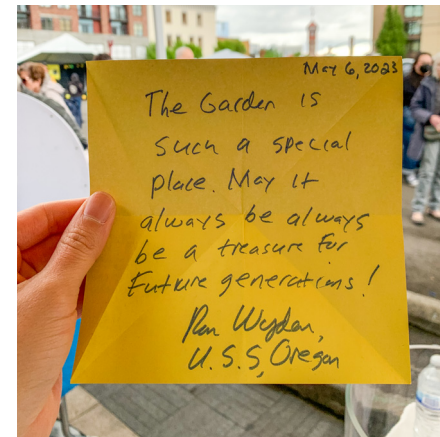 May 6, 2023
The Garden is
such a special
place. May it
always be always
be a treasure for
Future generations!
Ron Wyden,
U.S.S, Oregon